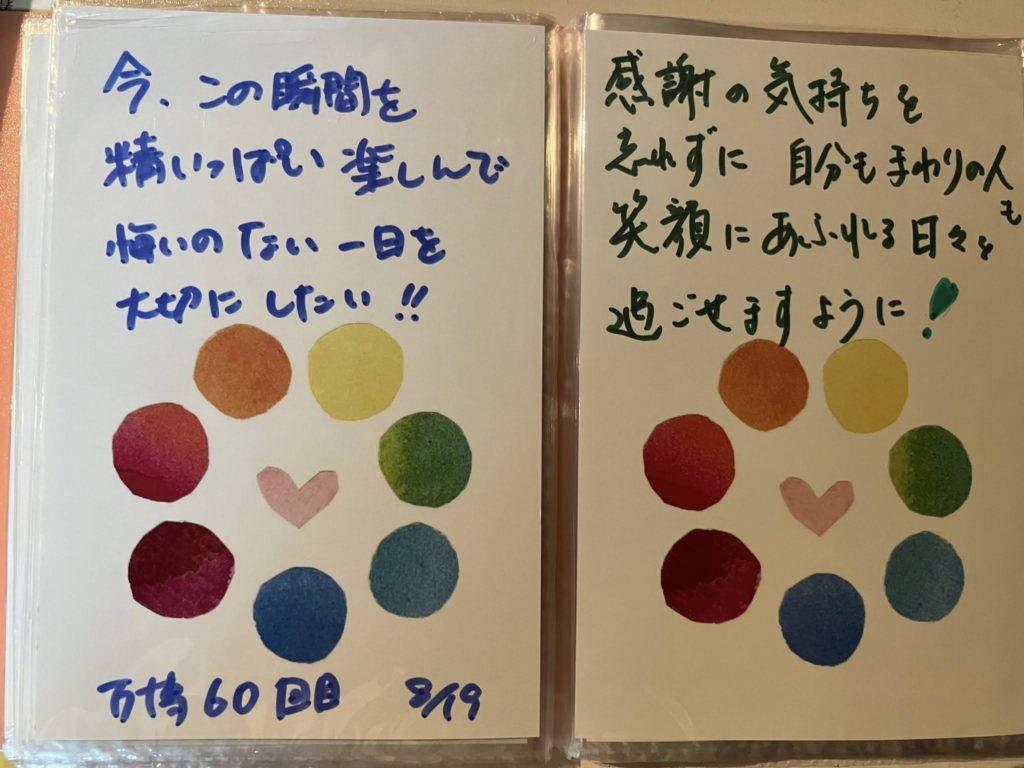 今、この瞬間を
精いっぱい楽しんで
悔いのない一日を
大切にしたい!!
万博60回目 8/19
感謝の気持ちを
忘れずに 自分もまわりの人も
笑顔にあふれる日々を
過ごせますように!